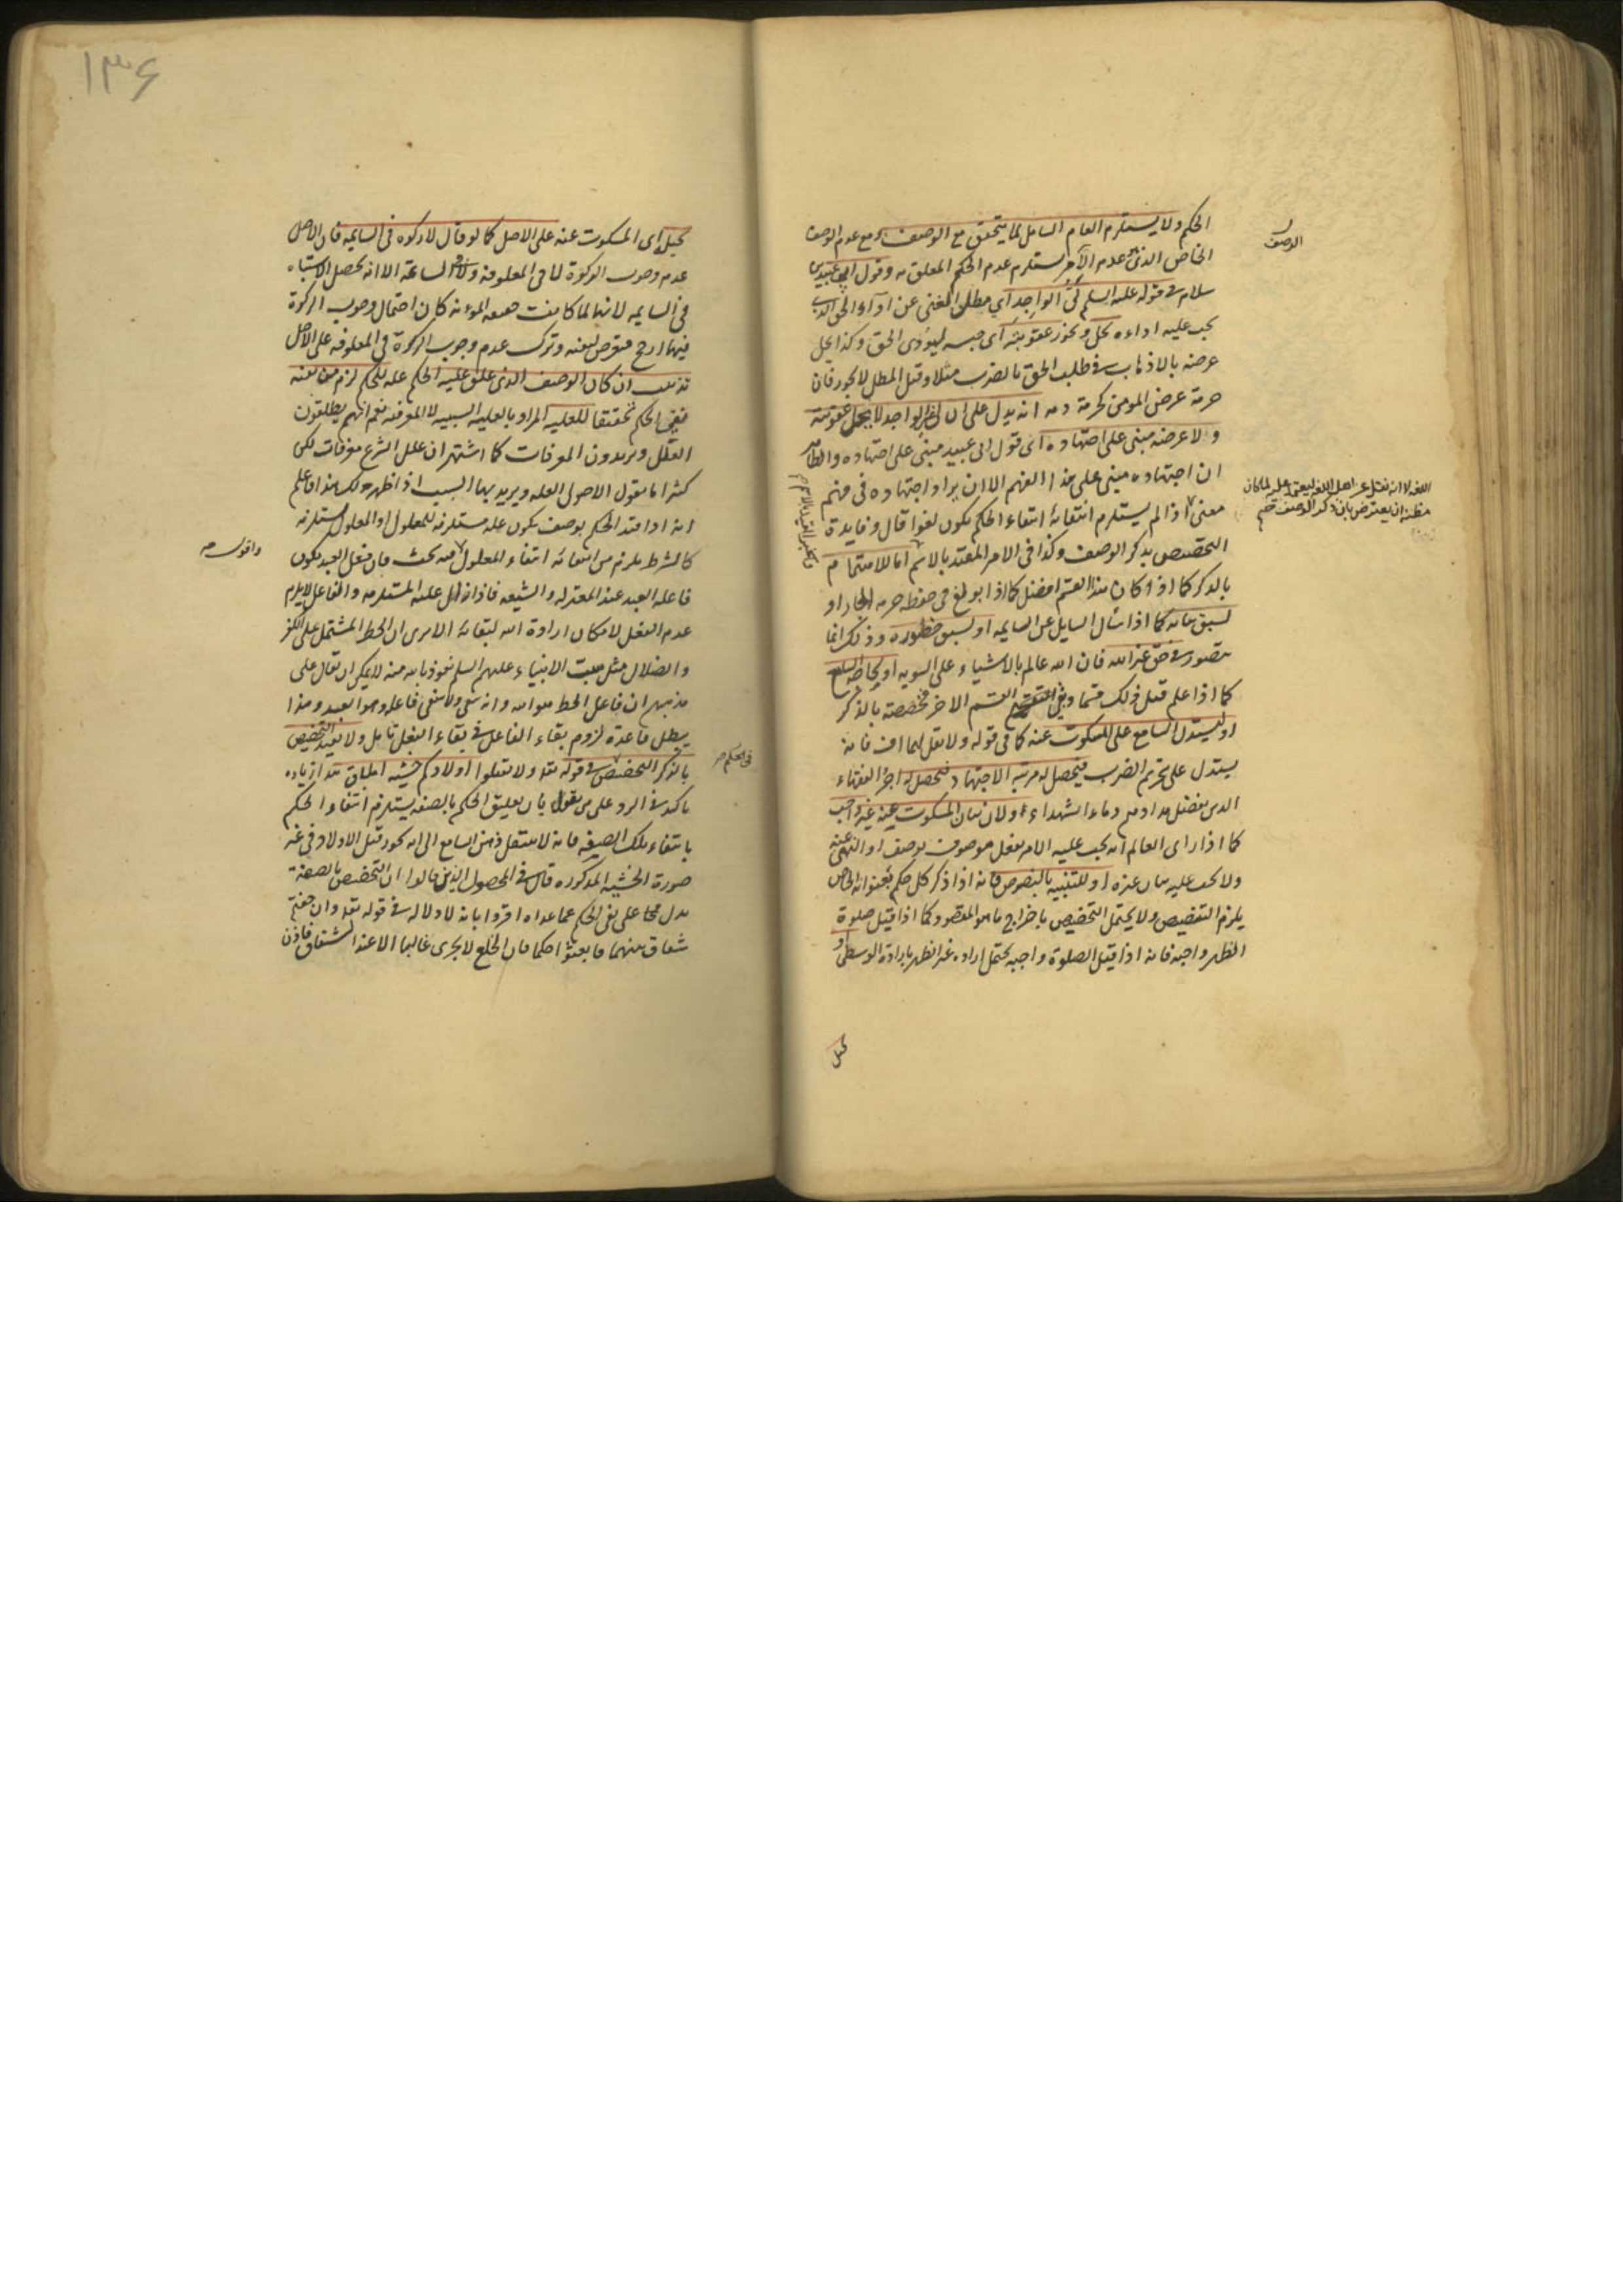 الحكم ولا يستلزم العام الشامل لما يتحقق مع الوصف ومع عدم الوصف
الخاص الذي هو عدم الآخر يستلزم عدم الحكم المعلق به وقول ابي عبيد بن
سلام في قوله عليه السلم ليّ الواجد اي مطل الغني عن اداء الحق الذي
يجب عليه اداءه يحل ويجوز عقوبته اي حبسه ليؤدى الحق وكذا يحل
عرضه بالاذهاب في طلب الحق بالضرب مثلا وقبل المطل لا يجوز فان
حرمة عرض المومن كحرمة دمه انه يدل على ان ليّ غير الواجد لا يحل عقوبته
ولا عرضه مبنى على اجتهاده اى قول ابى عبيد مبنى على اجتهاده والظاهر
ان اجتهاده مبنى على هذا الفهم الا ان يراد اجتهاده فى فهم
معنى اذا لم يستلزم انتفائه انتفاء الحكم يكون لغوا قال وفايدة
التخصيص بذكر الوصف وكذا فى الامر المقيد بالاسم اما للاهتمام
بالذكر كما اذا كان هذا القسم افضل كما اذا بولغ فى حفظ حرمة الجار او
لسبق بيانه كما اذا سأل السايل عن السايمه او لسبق خطوره وذلك انما
يتصور في حق غير الله فان الله عالم بالاشياء على السويه او
كما اذا علم قبل ذلك قسما وبقي القسم الاخر فخصصه بالذكر
او ليستدل السامع على المسكوت عنه كما فى قوله ولا تقل لهما اف فانه
يستدل على تحريم الضرب فيحصل له مرتبة الاجتهاد فيحصل له اجر الفقهاء
الذي يفضل مدادهم دماء الشهداء او لان بيان المسكوت عنه غير واجب
كما اذا راى العالم انه يجب عليه الامر بفعل موصوف بوصف او النهى عنه
ولا يجب عليه بيان غيره او للتنبيه بالنصوص فانه اذا ذكر كل حكم بعنوانه الخاص
يلزم التفصيص ولا يحتمل التخصيص باخراج ما هو المقصود كما اذا قيل صلوة
الظهر واجبه فانه اذا قيل الصلوة واجبه يحتمل اراده غير الظهر بارادة الوسطى او
الوصف
اللغه لا انه نقل عن اهل اللغه ليعتمد عليه لما كان
مظنة ان يعترض بان ذكر الوصف
١٣۶
اى المسكوت عنه على الاصل كما لو قال لا زكوه فى السايمه فان الاصل
عدم وجوب الزكوة لا فى المعلوفة ولا في السائمة الا انه يحصل الاشتباه
فى السايمه لانها لما كانت خفيفه المؤنه كان احتمال وجوب الزكوة
فيها ارجح فتعرض لنفيه وترك عدم وجوب الزكوة فى المعلوفه على الاصل
تذنيب ان كان الوصف الذى علق عليه الحكم علة للحكم لزم من نفيه
نفى الحكم تحقيقا للعليه المراد بالعليه السببيه لا المعرفه نعم انهم يطلقون
العلل ويريدون المعرفات كما اشتهر ان علل الشرع معرفات لكن
كثيرا ما يقول الاصولى العله ويريد بها السبب اذا ظهر ذلك هذا فاعلم
انه اذا قيد الحكم بوصف يكون علة مستلزمه للمعلول او المعلول مستلزمه
كالشرط يلزم من انتفائه انتفاء المعلول فيه بحث فان فعل العبد يكون
فاعله العبد عند المعتزله والشيعه فاذا زال علته المستلزمه والفاعل لا يلزم
عدم الفعل لامكان ارادة الله لبقائه الا ترى ان الخط المشتمل على الكفر
والضلال مثل سب الانبياء عليهم السلم نعوذ بالله منه لا يمكن ان يقال على
مذهبهم ان فاعل الخط هو الله وانه يبقى ولا يبقى فاعله وهو العبد وهذا
يبطل قاعدة لزوم بقاء الفاعل في بقاء الفعل تامل ولا يفيد التخصيص
بالذكر التخصيص في قوله تعه ولا تقتلوا اولادكم خشية املاق
تاكيد في الرد على من يقول بان تعليق الحكم بالصفه يستلزم انتفاء الحكم
بانتفاء تلك الصفه فانه لا ينتقل ذهن السامع الى انه يجوز قتل الاولاد فى غير
صورة الخشيه المذكوره قال في المحصول الذين قالوا ان التخصيص بالصفة
يدل على نفى الحكم عما عداه اقروا بانه لا دلاله في قوله تعه وان خفتم
شقاق بينهما فابعثوا حكما فان الخلع لا يجرى غالبا الا عند الشقاق فاذن
واقول
فى الحكم